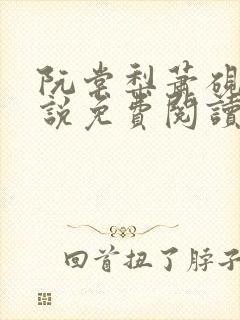 阮棠梨蕭硯
說免費閱讀
回首扭了脖子